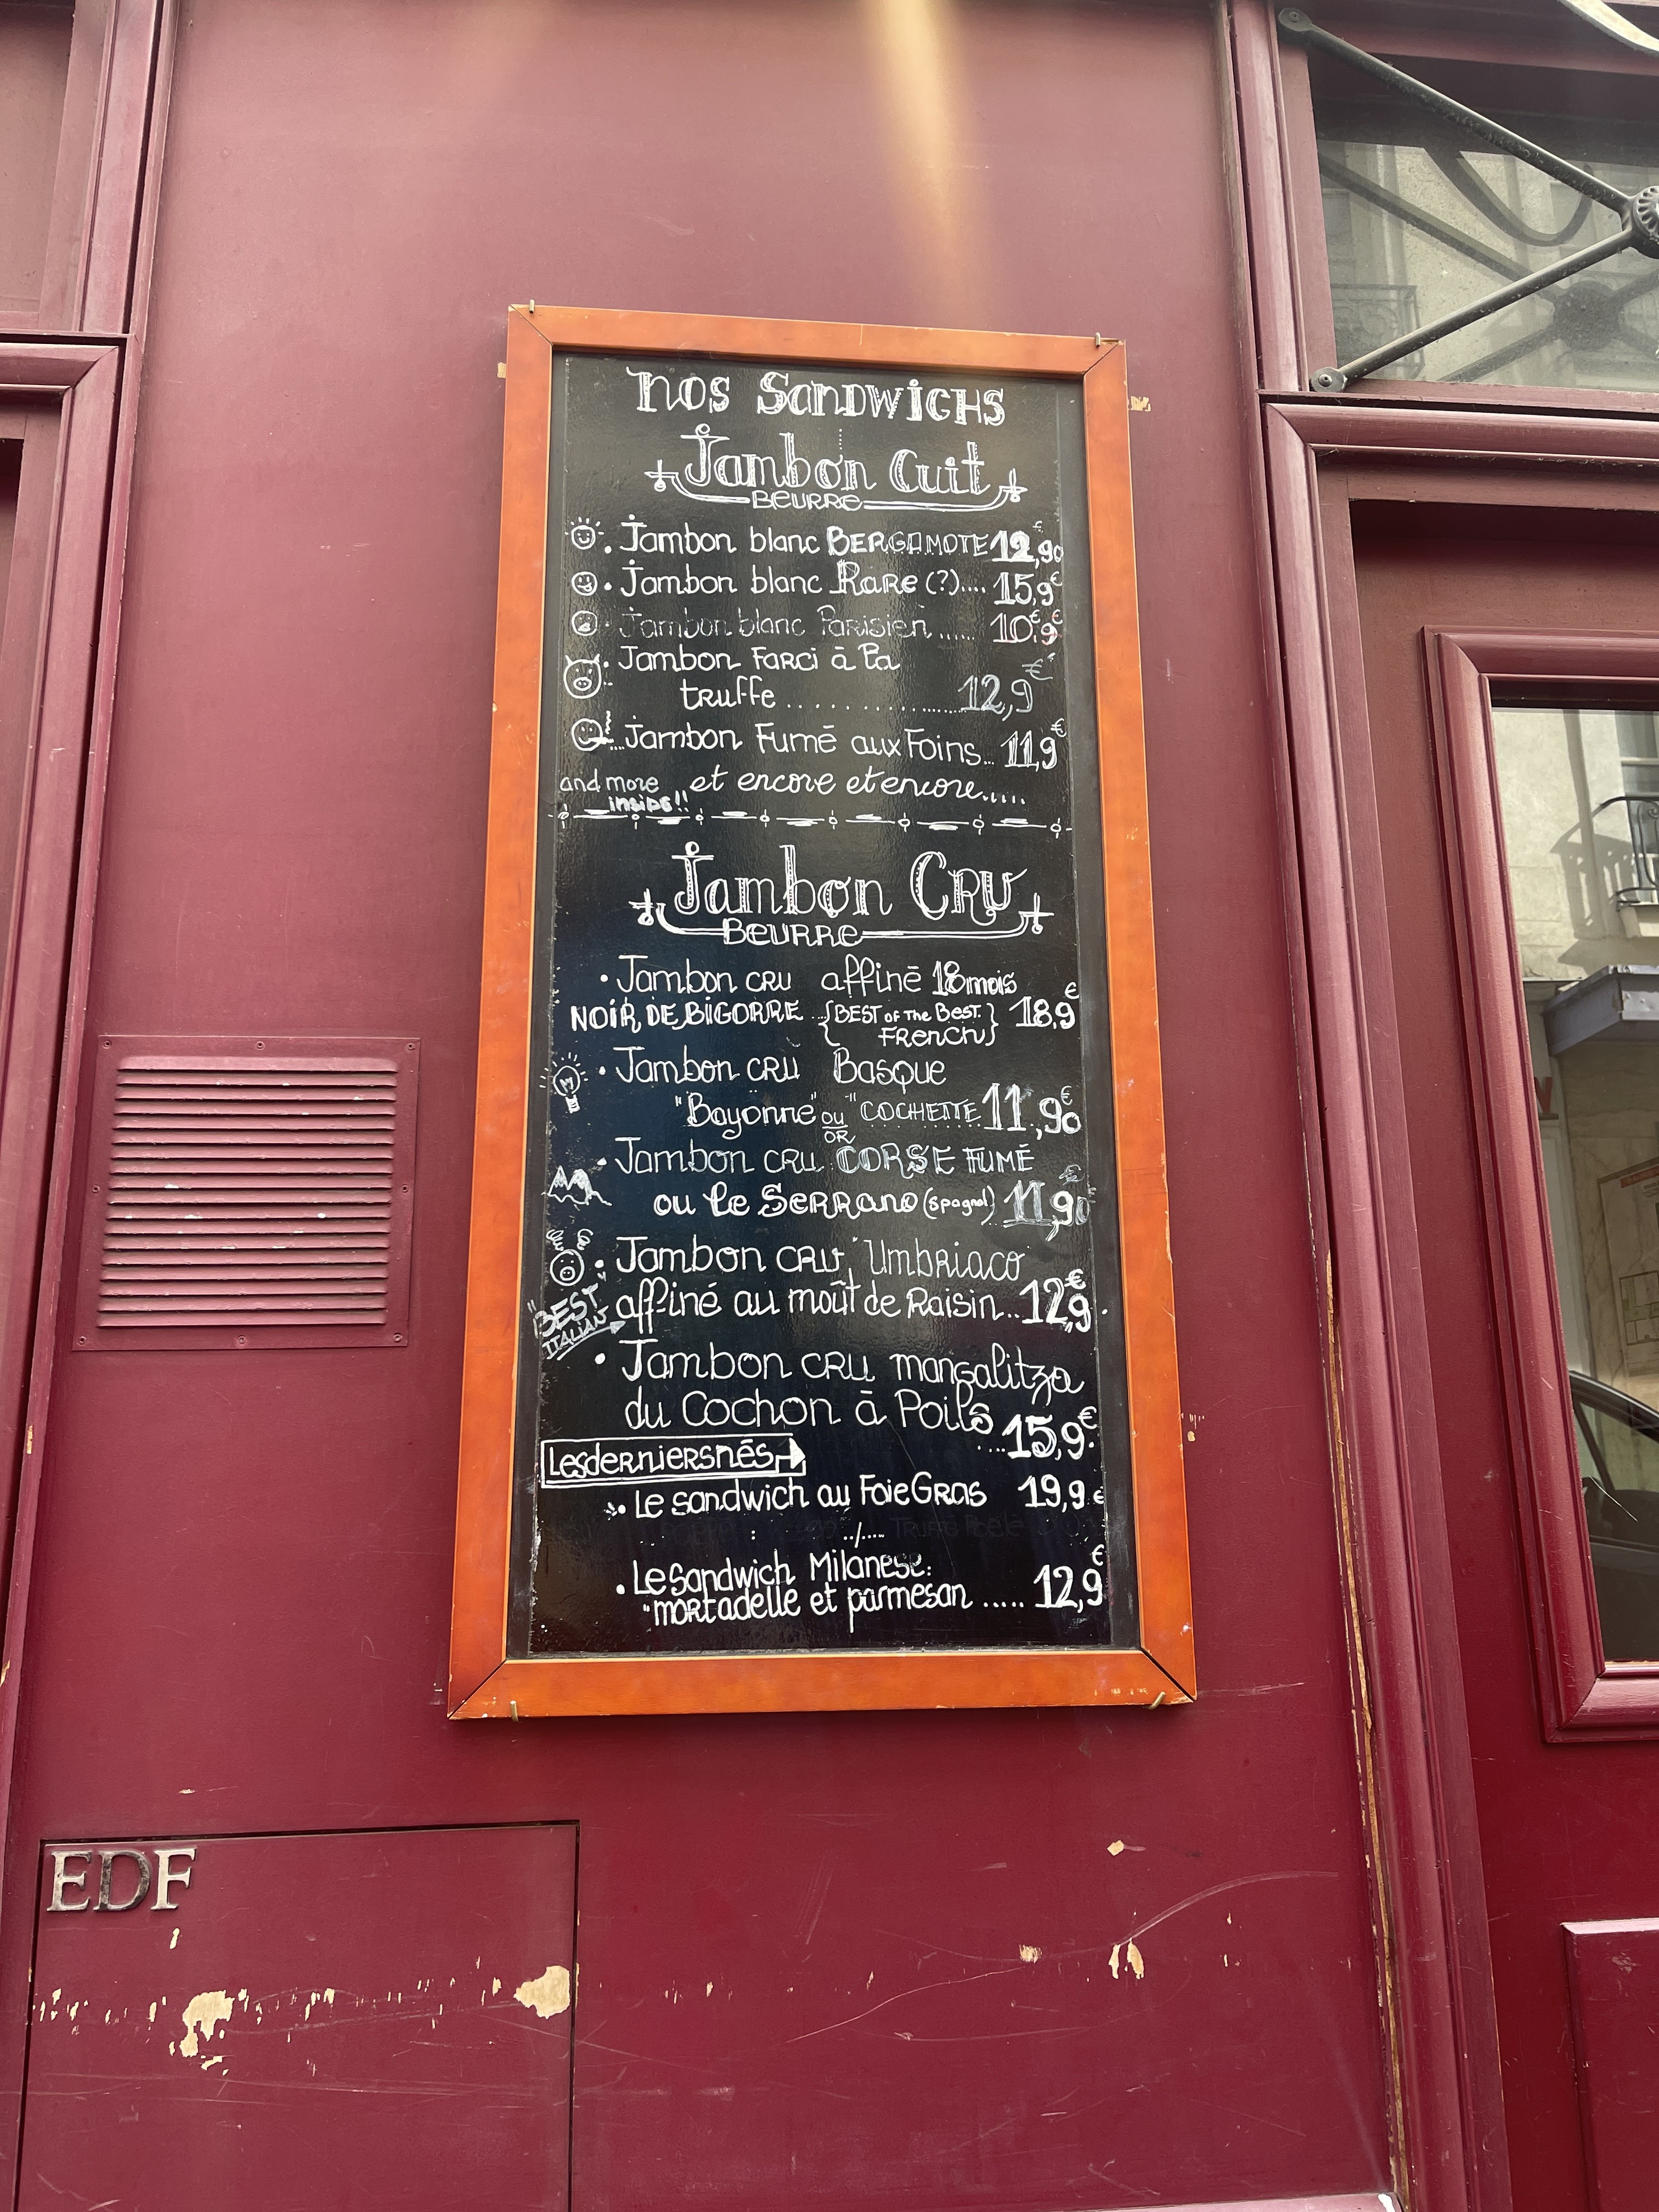 nos Sandwichs
Jambon Cuit
Beurre
• Jambon blanc BERGAMOTE 12,90€
• Jambon blanc Rare (?).... 15,9€
• Jambon blanc Parisien ...... 10,9€
• Jambon Farci à la
truffe .................. 12,9€
Jambon Fumé aux Foins... 11,9€
and more et encore et encore.....
inside!!
Jambon Cru
Beurre
• Jambon cru affiné 18 mois
NOIR DE BIGORRE ... {BEST of THE BEST. 18,9€
FRENCH}
• Jambon cru Basque
"Bayonne" ou "COCHETTE 11,90€
OR
• Jambon cru CORSE FUMÉ
ou le Serrano (Spagnol) 11,90€
• Jambon cru "Umbriaco
"BEST affiné au moût de Raisin... 12,9€
ITALIAN
• Jambon cru mangalitza
du Cochon à Poils
... 15,9€
Les derniers nés
• Le sandwich au Foie Gras 19,9€
../....
• Le Sandwich Milanese:
"mortadelle et parmesan ..... 12,9€
EDF